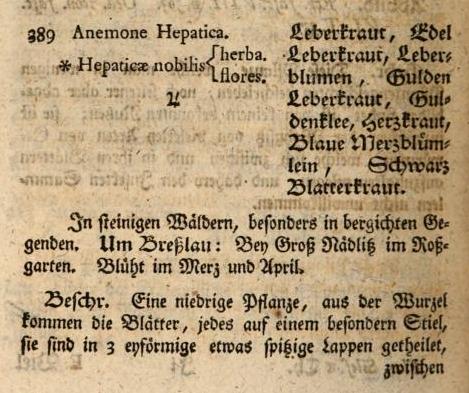 389 Anemone Hepatica.
* Hepaticæ nobilis { herba.
flores.
♃
Leberkraut, Edel
Leberkraut, Leber⸗
blumen, Gulden
Leberkraut, Gul⸗
denklee, Herzkraut,
Blaue Merzblüm⸗
lein, Schwarz
Blatterkraut.
In ſteinigen Wäldern, beſonders in bergichten Ge⸗
genden. Um Breßlau: Bey Groß Nädlitz im Roß⸗
garten. Blüht im Merz und April.
Beſchr. Eine niedrige Pflanze, aus der Wurzel
kommen die Blätter, jedes auf einem beſondern Stiel,
ſie ſind in 3 eyförmige etwas ſpitzige Lappen getheilet,
zwiſchen